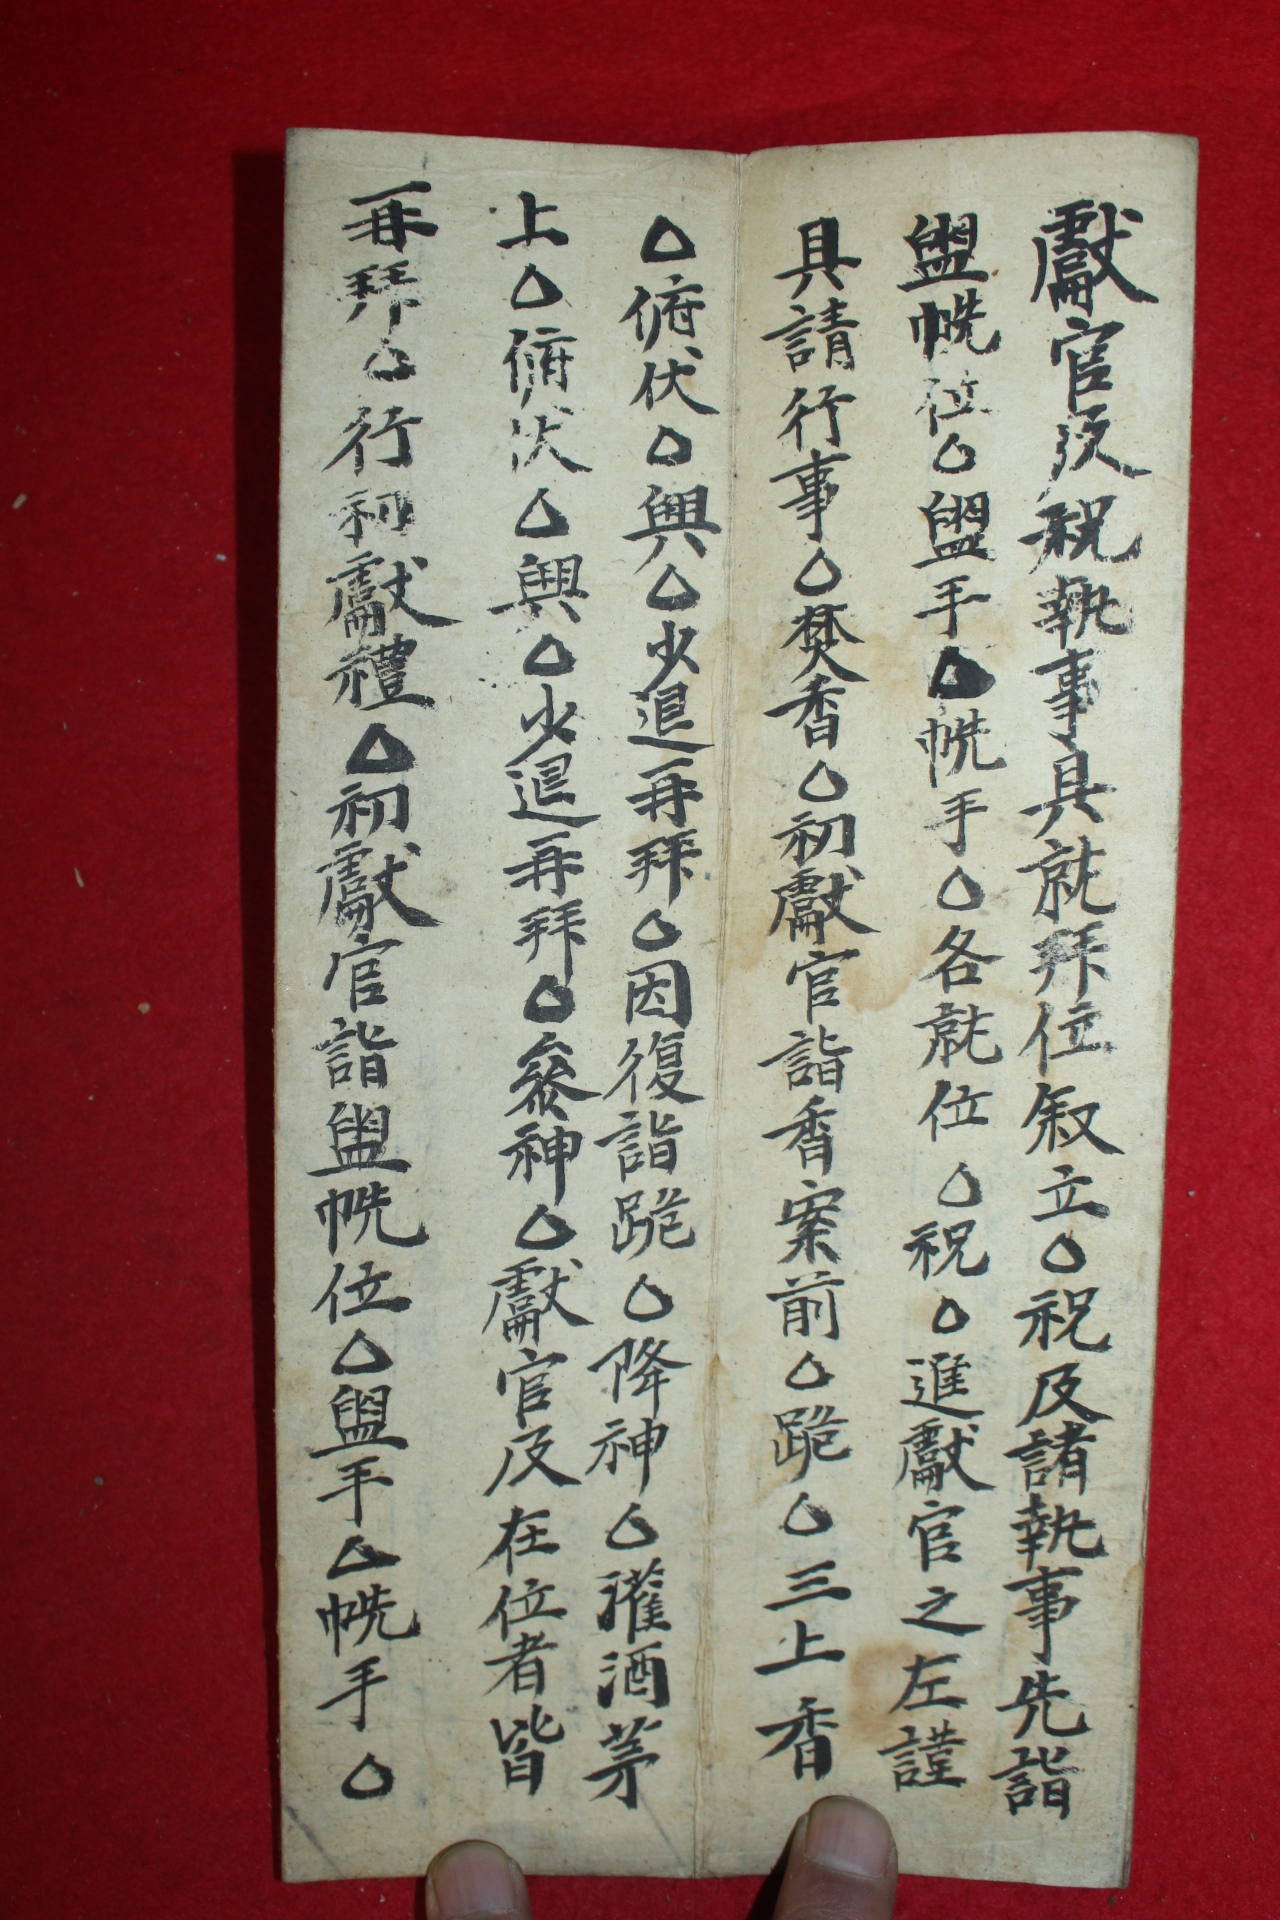 獻官及祝執事具就拜位叙立△祝及諸執事先詣
盥帨位△盥手△帨手△各就位△祝△進獻官之左謹
具請行事△焚香△初獻官詣香案前△跪△三上香
△俯伏△興△少退再拜△因復詣跪△降神△灌酒茅
上△俯伏△興△少退再拜△參神△獻官及在位者皆
再拜△行初獻禮△初獻官詣盥帨位△盥手△帨手△